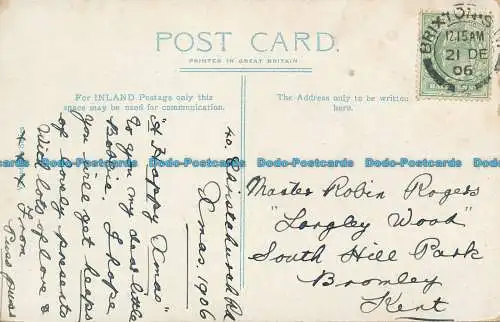 POST CARD.
PRINTED IN GREAT BRITAIN
For INLAND Postage only this
space may be used for communication.
The Address only to be written
here.
BRIXTON S
12.15AM
21 DE
06
40, Christchurch Rd
Xmas. 1906
"A Happy Xmas"
to you my dear little
Bobbie. I hope
you will get heaps
of lovely presents
With lots of love &
From
Puss puss
Master Robin Rogers
"Langley Wood"
South Hill Park
Bromley
Kent
Bodo-Postcards Bodo-Postcards Bodo-Postcards Bodo-Postcards Bodo-Postcards